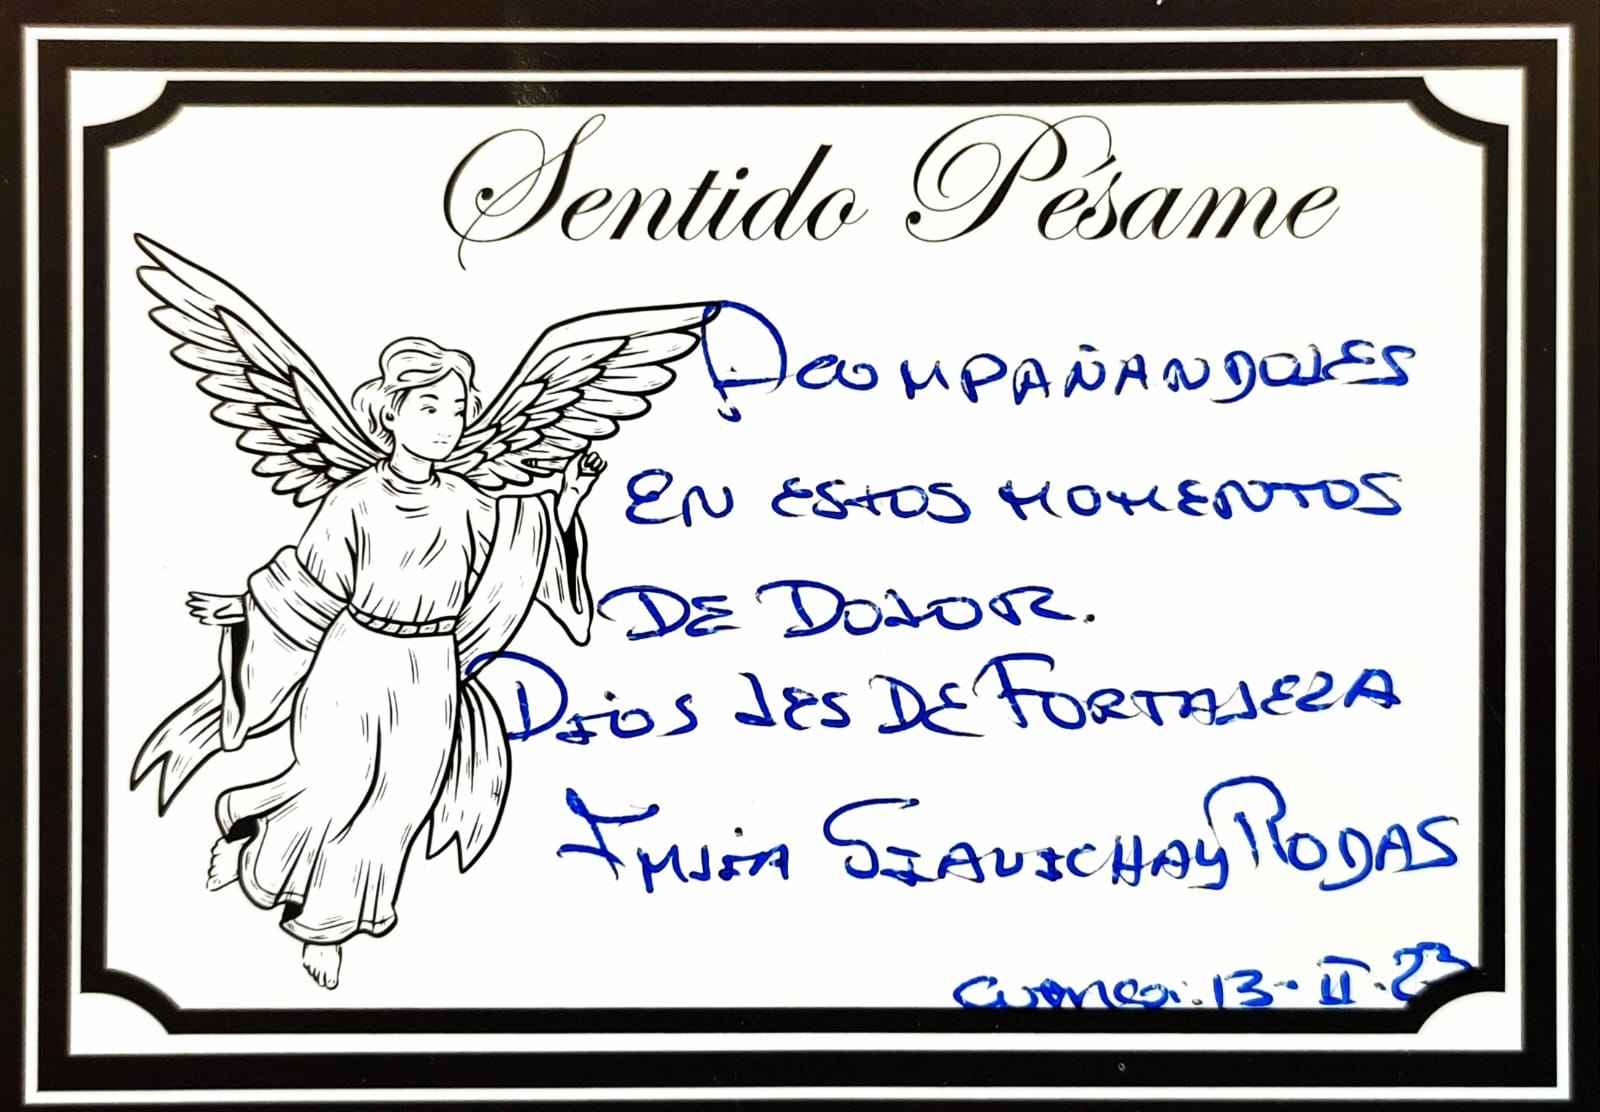 Sentido Pésame
ACOMPAÑANDOLES
EN ESTOS MOMENTOS
DE DOLOR.
DIOS LES DE FORTALEZA
FMLIA GUAUICHAY RODAS
CUENCA: 13-II-23